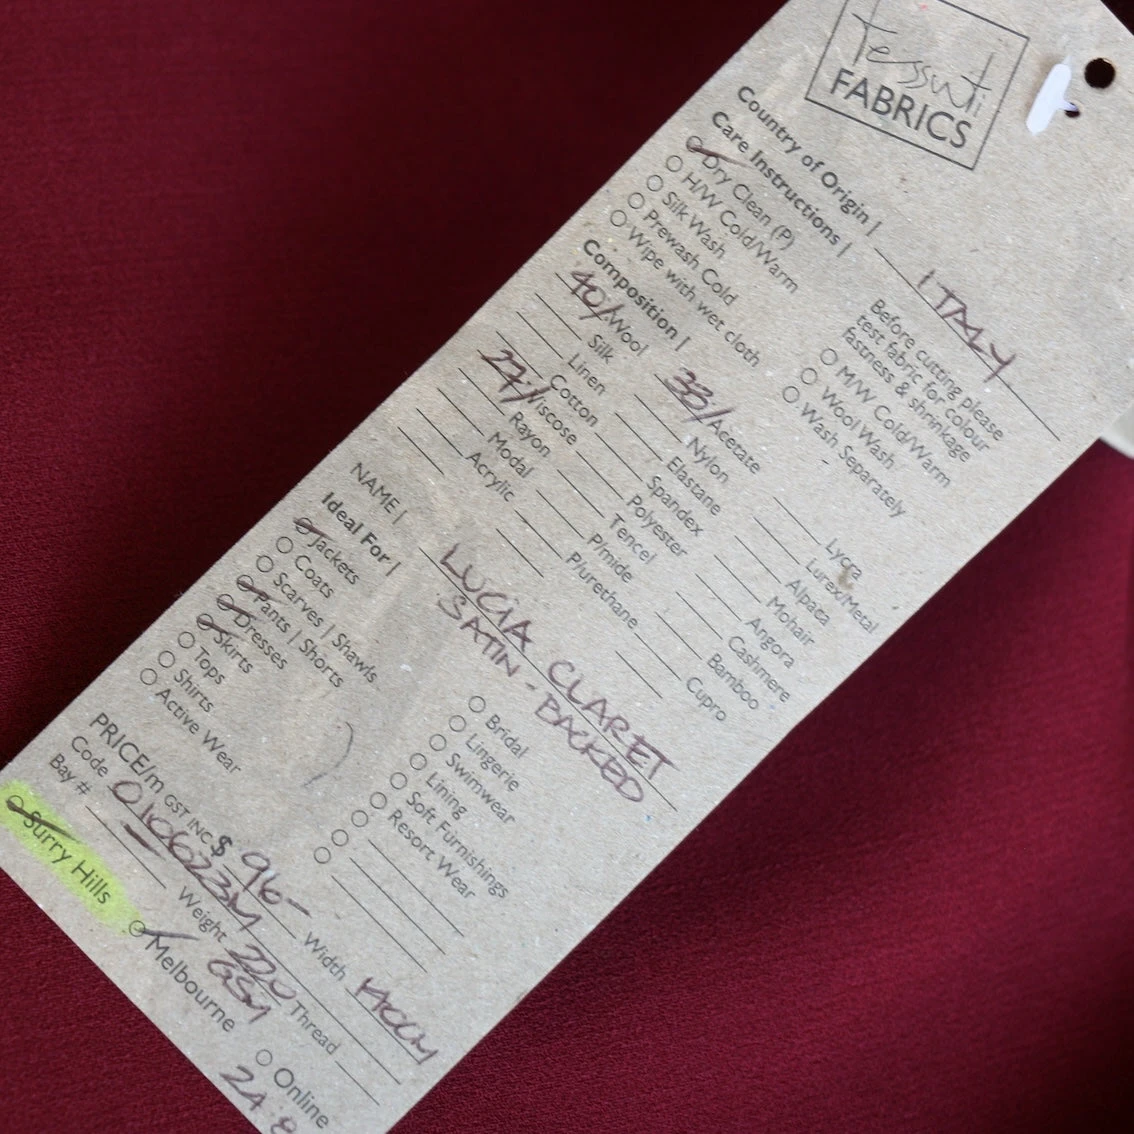 Tessuti
FABRICS
Country of Origin | ITALY
Care Instructions |
Dry Clean (P)
H/W Cold/Warm
Silk Wash
Prewash Cold
Wipe with wet cloth
Before cutting please
test fabric for colour
fastness & shrinkage
M/W Cold/Warm
Wool Wash
Wash Separately
Composition |
40/. Wool
Silk
Linen
Cotton
27/. Viscose
Rayon
Modal
Acrylic
33/. Acetate
Nylon
Elastane
Spandex
Polyester
Tencel
P/mide
P/urethane
Lycra
Lurex/Metal
Alpaca
Mohair
Angora
Cashmere
Bamboo
Cupro
NAME | LUCIA CLARET
SATIN-BACKED
Ideal For |
Jackets
Coats
Scarves | Shawls
Pants | Shorts
Dresses
Skirts
Tops
Shirts
Active Wear
Bridal
Lingerie
Swimwear
Lining
Soft Furnishings
Resort Wear
PRICE/m GST INC $ 96- Width 140cm
Code 010623M Weight 220 GSM Thread
Bay #
Surry Hills
Melbourne
Online